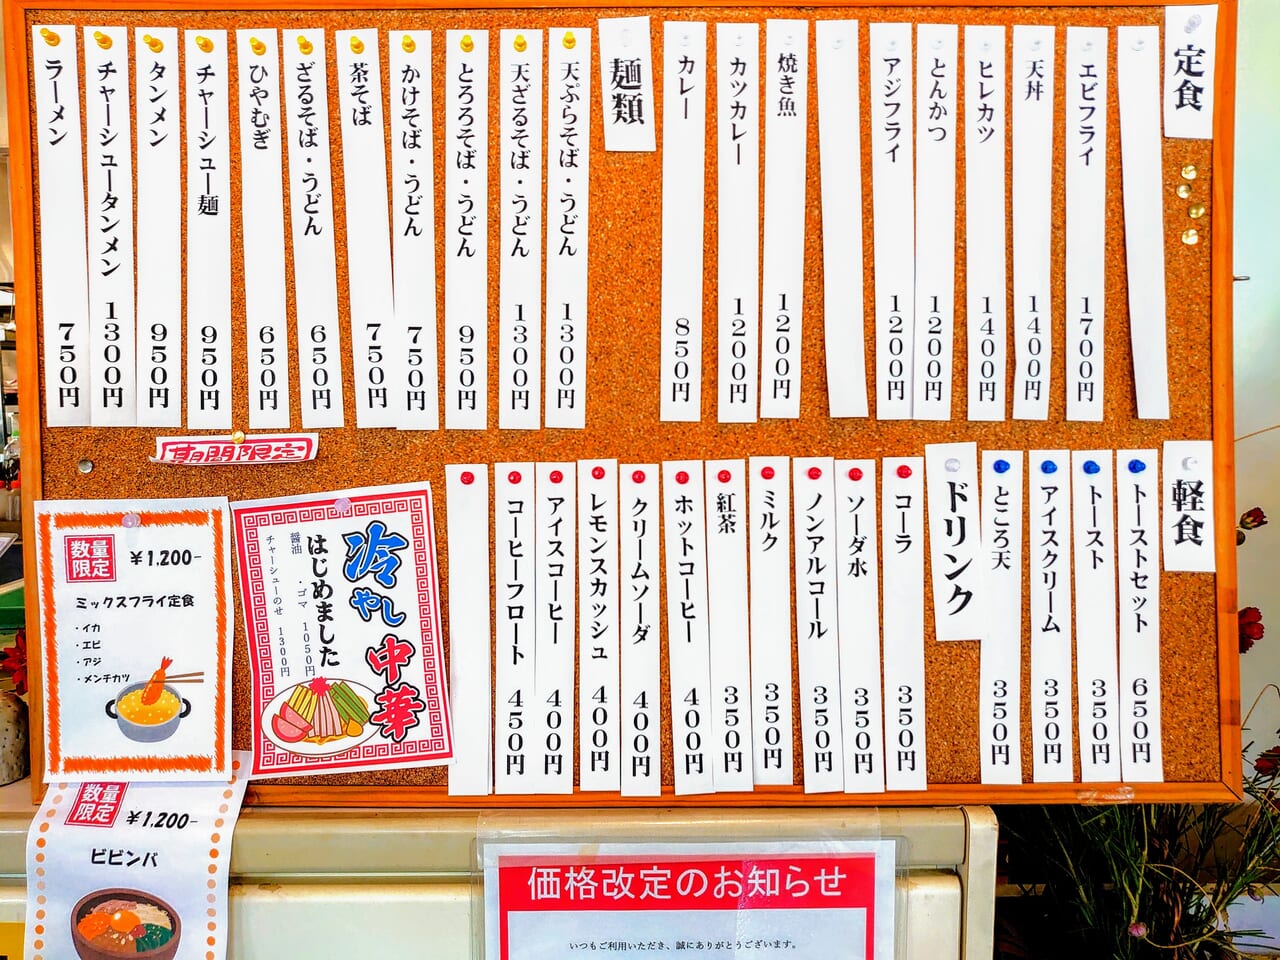 定食
エビフライ 1700円
天丼 1400円
ヒレカツ 1400円
とんかつ 1200円
アジフライ 1200円
焼き魚 1200円
カツカレー 1200円
カレー 850円
麺類
天ぷらそば・うどん 1300円
天ざるそば・うどん 1300円
とろろそば・うどん 950円
かけそば・うどん 750円
茶そば 750円
ざるそば・うどん 650円
ひやむぎ 650円
チャーシュー麺 950円
タンメン 950円
チャーシュータンメン 1300円
ラーメン 750円
軽食
トーストセット 650円
トースト 350円
アイスクリーム 350円
ところ天 350円
ドリンク
コーラ 350円
ソーダ水 350円
ノンアルコール 350円
ミルク 350円
紅茶 350円
ホットコーヒー 400円
クリームソーダ 400円
レモンスカッシュ 400円
アイスコーヒー 400円
コーヒーフロート 450円
期間限定
冷やし中華
はじめました
醤油・ゴマ 1050円
チャーシューのせ 1300円
数量
限定
¥1,200-
ミックスフライ定食
・イカ
・エビ
・アジ
・メンチカツ
数量
限定
¥1,200-
ビビンバ
価格改定のお知らせ
いつもご利用いただき、誠にありがとうございます。